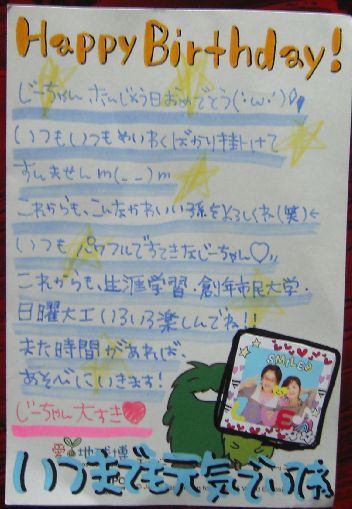 Happy Birthday!
じーちゃんたんじょう日おめでとう(･ω･)
いつもいつもめいわくばかり掛けて
すんませんm(_ _)m
これからも、こんなかわいい孫をよろしくね(笑)
いつもパワフルですてきなじーちゃん♡
これからも、生涯学習・創年市民大学・
日曜大工いろいろ楽しんでね!!
また時間があれば
あそびにいきます!
じーちゃん大すき♥
SMILE
愛・地球博
いつまでも元気でいてネ